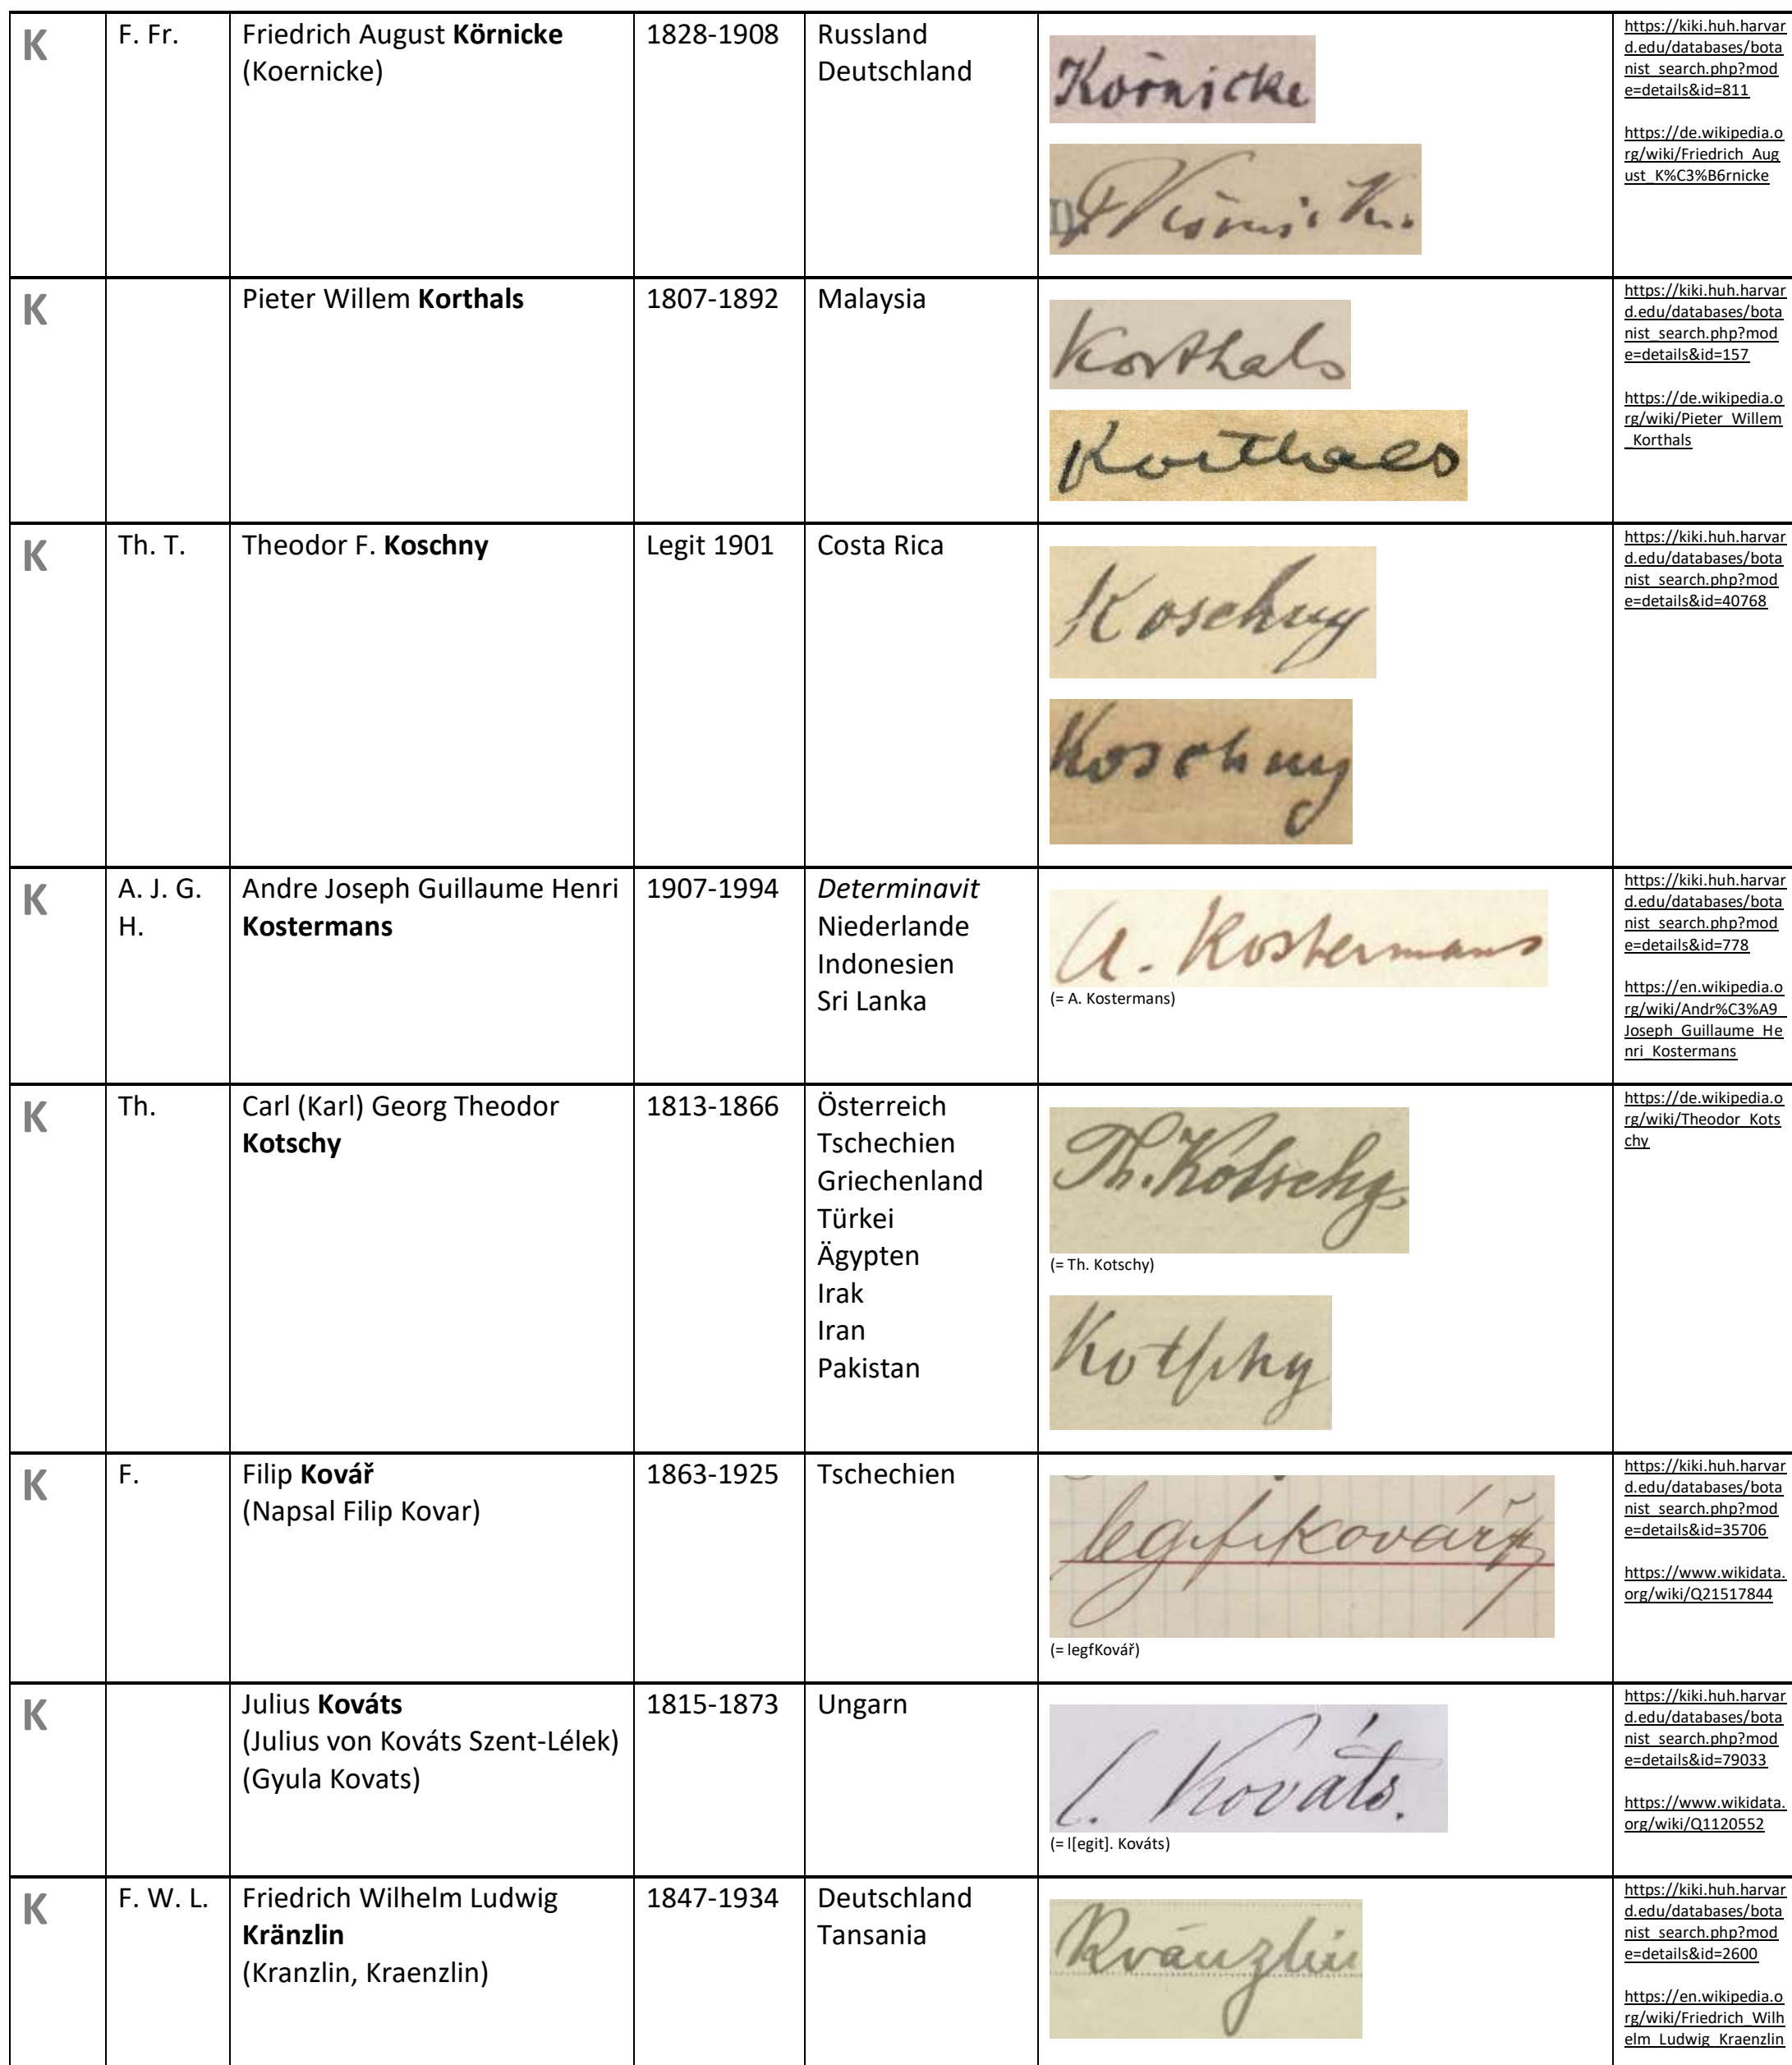 K
F. Fr.
Friedrich August Körnicke
(Koernicke)
1828-1908
Russland
Deutschland
Körnicke
https://kiki.huh.harvar
d.edu/databases/bota
nist_search.php?mod
e=details&id=811
https://de.wikipedia.o
rg/wiki/Friedrich_Aug
ust_K%C3%B6rnicke
K
Pieter Willem Korthals
1807-1892
Malaysia
Korthals
Korthals
https://kiki.huh.harvar
d.edu/databases/bota
nist_search.php?mod
e=details&id=157
https://de.wikipedia.o
rg/wiki/Pieter_Willem
_Korthals
K
Th. T.
Theodor F. Koschny
Legit 1901
Costa Rica
Koschny
Koschny
https://kiki.huh.harvar
d.edu/databases/bota
nist_search.php?mod
e=details&id=40768
K
A. J. G.
H.
Andre Joseph Guillaume Henri
Kostermans
1907-1994
Determinavit
Niederlande
Indonesien
Sri Lanka
A. Kostermans
(= A. Kostermans)
https://kiki.huh.harvar
d.edu/databases/bota
nist_search.php?mod
e=details&id=778
https://en.wikipedia.o
rg/wiki/Andr%C3%A9_
Joseph_Guillaume_He
nri_Kostermans
K
Th.
Carl (Karl) Georg Theodor
Kotschy
1813-1866
Österreich
Tschechien
Griechenland
Türkei
Ägypten
Irak
Iran
Pakistan
Th. Kotschy
(= Th. Kotschy)
Kotschy
https://de.wikipedia.o
rg/wiki/Theodor_Kots
chy
K
F.
Filip Kovář
(Napsal Filip Kovar)
1863-1925
Tschechien
legfKovář
(= legfKovář)
https://kiki.huh.harvar
d.edu/databases/bota
nist_search.php?mod
e=details&id=35706
https://www.wikidata.
org/wiki/Q21517844
K
Julius Kováts
(Julius von Kováts Szent-Lélek)
(Gyula Kovats)
1815-1873
Ungarn
l. Kováts.
(= l[egit]. Kováts)
https://kiki.huh.harvar
d.edu/databases/bota
nist_search.php?mod
e=details&id=79033
https://www.wikidata.
org/wiki/Q1120552
K
F. W. L.
Friedrich Wilhelm Ludwig
Kränzlin
(Kranzlin, Kraenzlin)
1847-1934
Deutschland
Tansania
Kränzlin
https://kiki.huh.harvar
d.edu/databases/bota
nist_search.php?mod
e=details&id=2600
https://en.wikipedia.o
rg/wiki/Friedrich_Wilh
elm_Ludwig_Kraenzlin